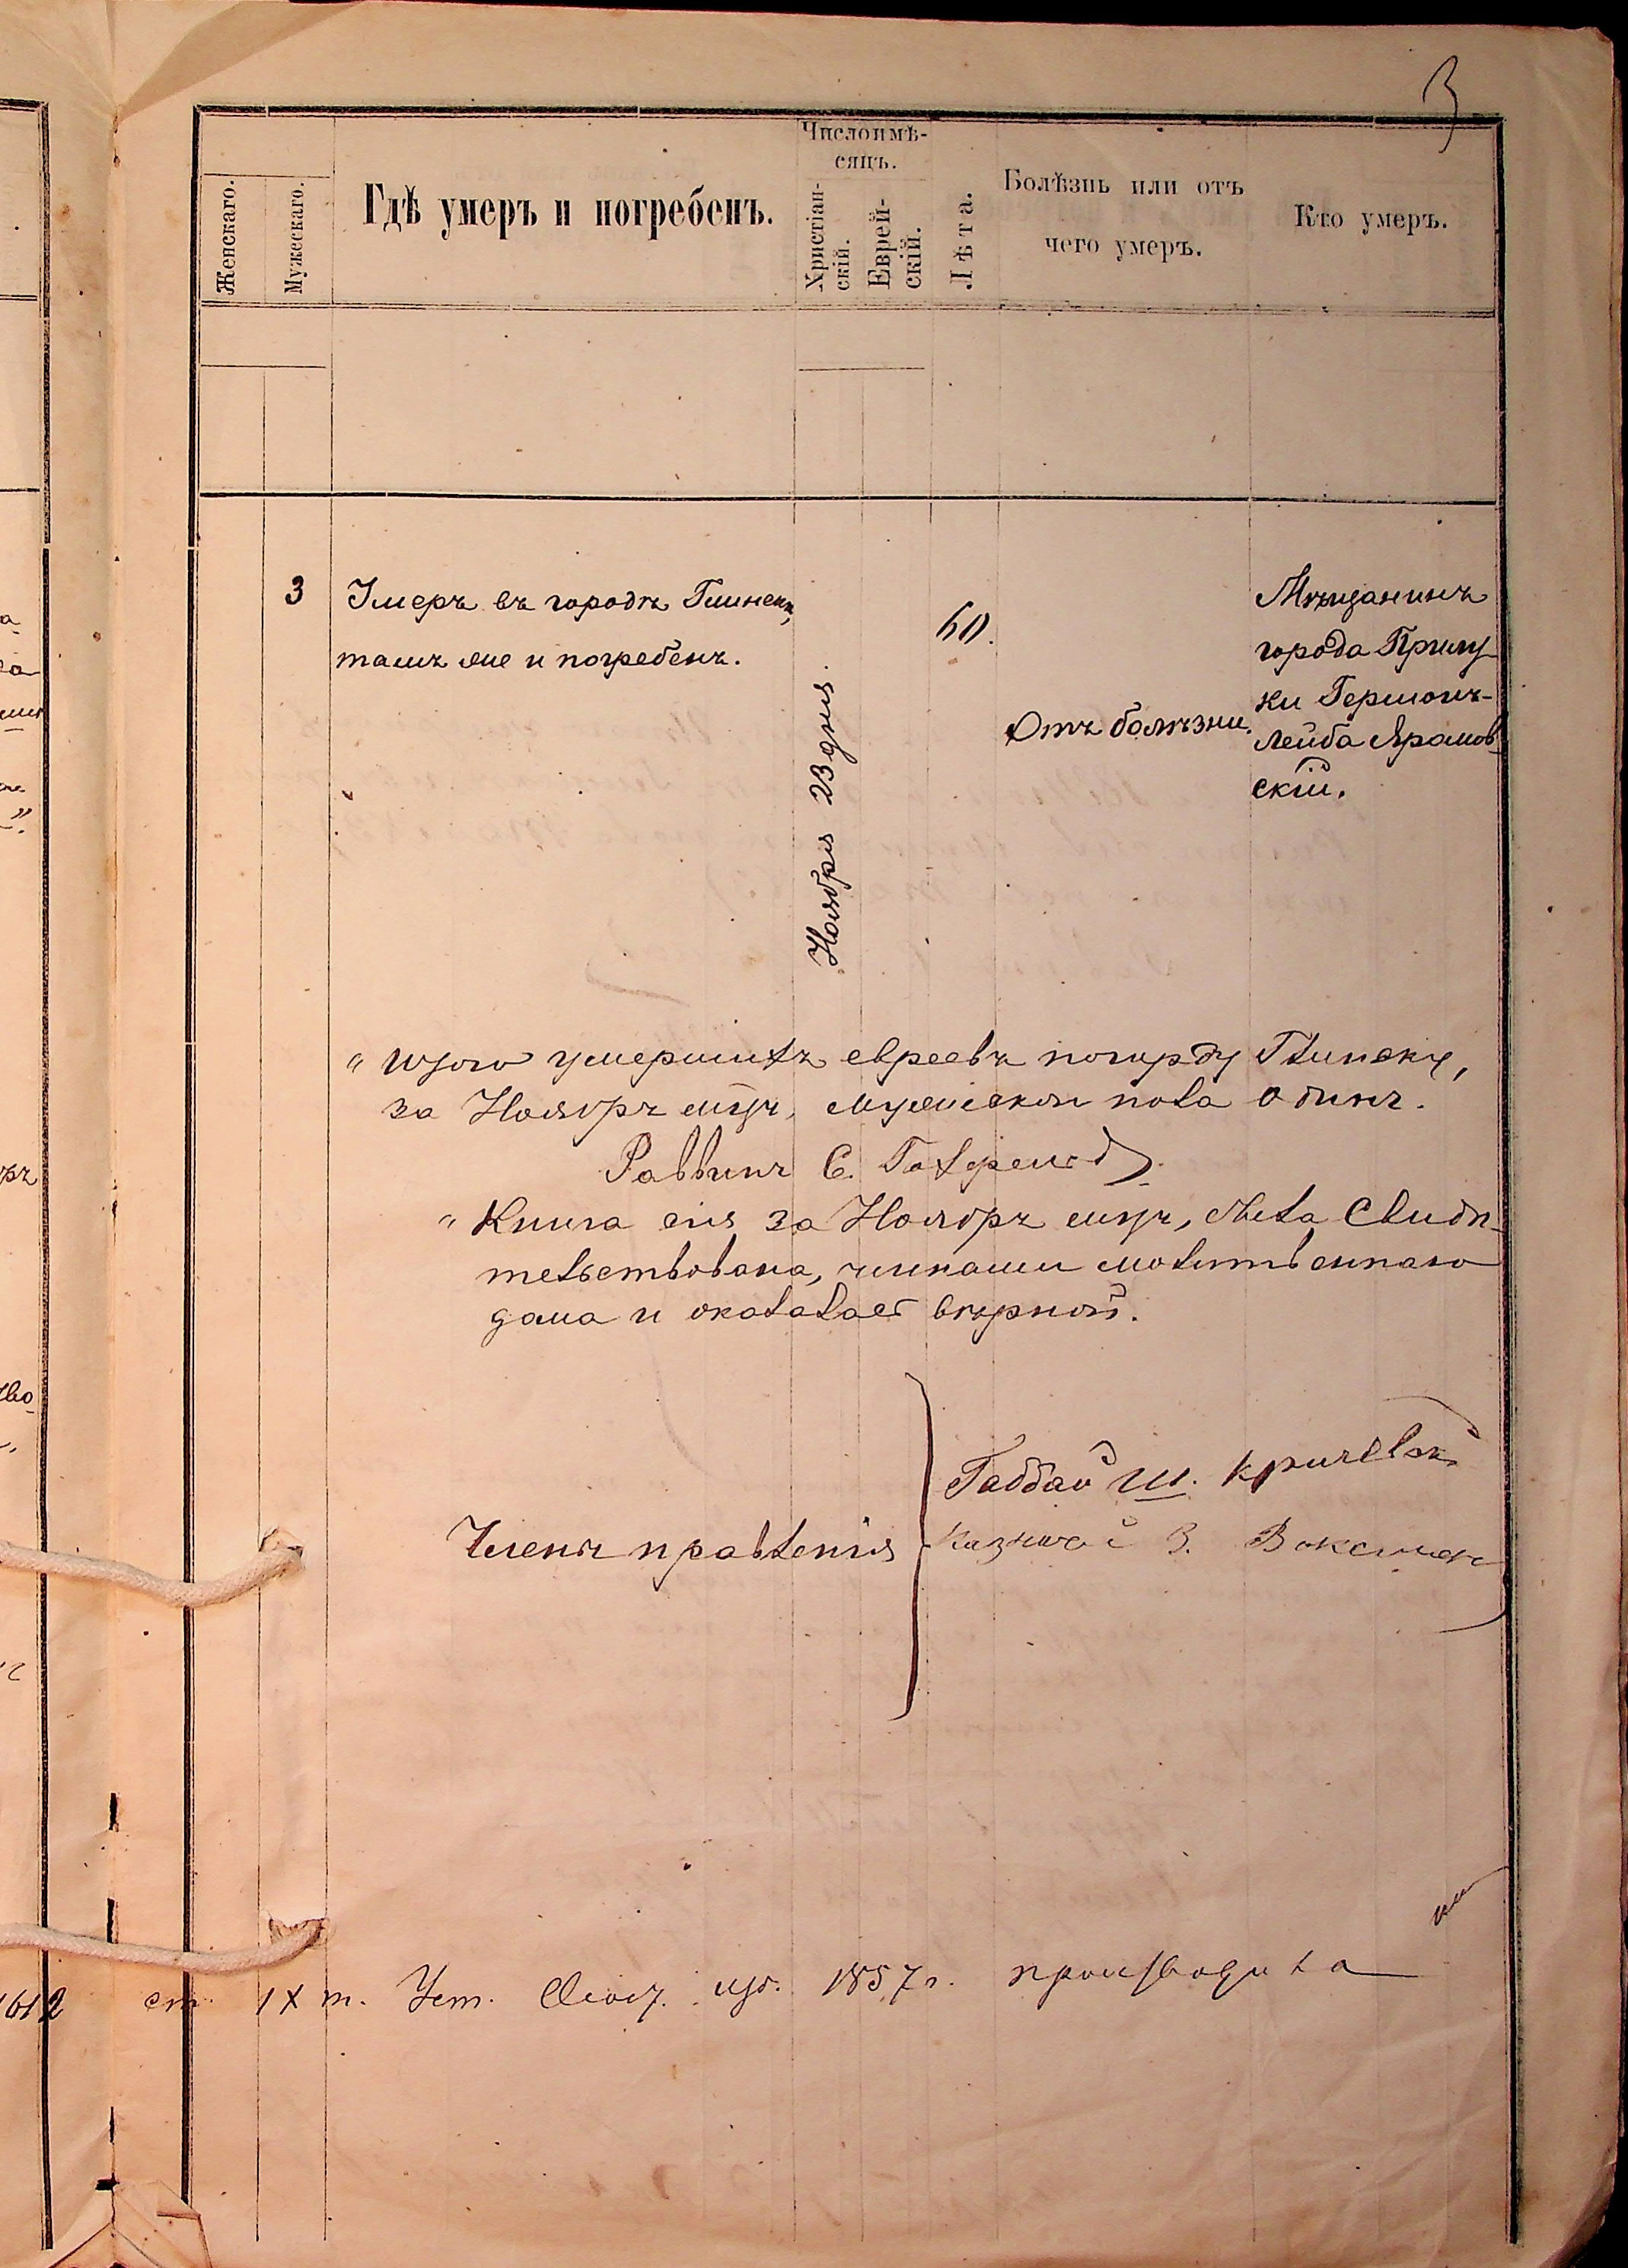 3
Женскаго.
Мужескаго.
Гдѣ умеръ и погребенъ.
Число и мѣ-
сяцъ.
Христіан-
скій.
Еврей-
скій.
Лѣта.
Болѣзнь или отъ
чего умеръ.
Кто умеръ.
3
Умеръ въ городѣ Глинскѣ,
тамъ же и погребенъ.
Ноября 23 дня.
60.
Отъ болѣзни.
Мѣщанинъ
города Прилу-
ки Гершонъ-
Лейба Арамов-
скій.
" Итого умершихъ евреевъ по городу Глинску,
за Ноябрь мцъ, мужеского пола одинъ.
Раввинъ С.
" Книга сія за Ноябрь мцъ, была свидѣ-
тельствована, членами молитвеннаго
дома и оказалась вѣрной.
Члены правленія
Габбай Ш. Кричевск
Казначей З.
1612 ст. IX т. Уст. изд. 1857 г. производила